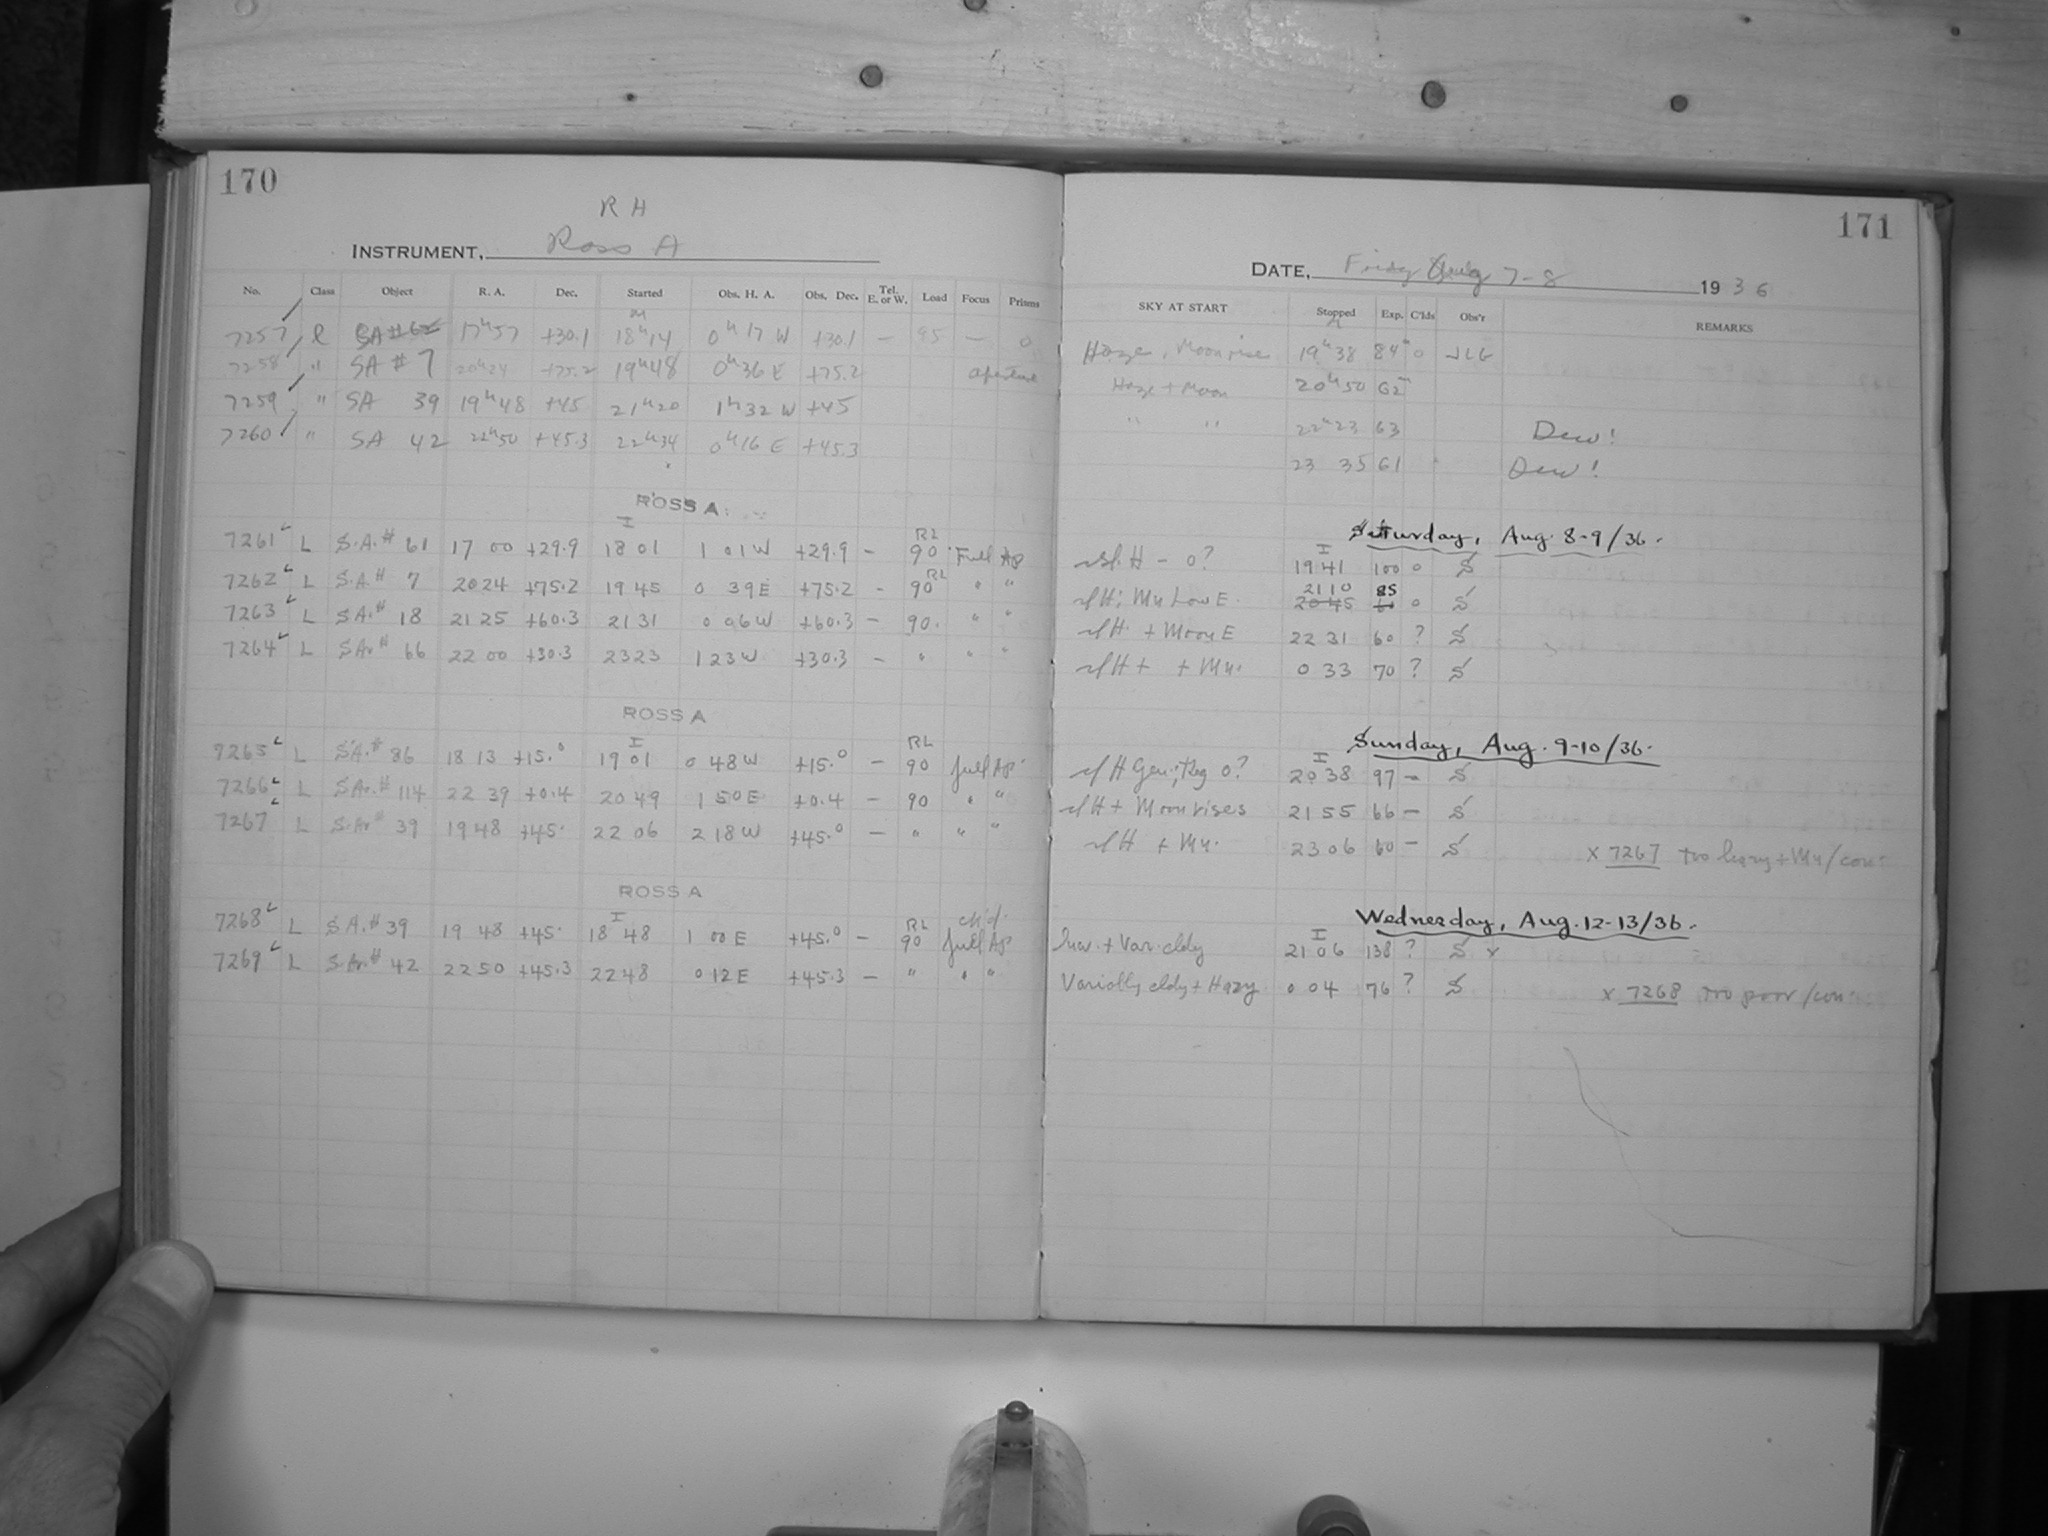 170
R H
INSTRUMENT, Ross A
No. Class Object R. A. Dec. Started Obs. H. A. Obs. Dec. Tel. E. or W. Load Focus Prisms
7257 L 17h57 +30.1 18h14 0h17 W +30.1 — 95 — 0
7258 " SA # 7 20h24 +75.2 19h48 0h36 E +75.2 aperture
7259 " SA 39 19h48 +45 21h20 1h32 W +45
7260 " SA 42 22h50 +45.3 22h34 0h16 E +45.3
ROSS A
7261 L S.A.# 61 17 00 +29.9 18 01 1 01 W +29.9 – RL 90 Full Ap
7262 L S.A.# 7 20 24 +75.2 19 45 0 39 E +75.2 - 90 RL " "
7263 L S.A.# 18 21 25 +60.3 21 31 0 06 W +60.3 – 90. " "
7264 L S.Ar # 66 22 00 +30.3 23 23 1 23 W +30.3 – " " "
ROSS A
7265 L S.A.# 86 18 13 +15.0 19 01 0 48 W +15.0 – RL 90 full Ap.
7266 L S.Ar.# 114 22 39 +0.4 20 49 1 50 E +0.4 – 90 " "
7267 L S.Ar# 39 19 48 +45. 22 06 2 18 W +45.0 – " " "
ROSS A
7268 L S.A.# 39 19 48 +45. 18 48 1 00 E +45.0 – RL 90 full Ap
7269 L S.Ar.# 42 22 50 +45.3 22 48 0 12 E +45.3 – " " "
171
DATE, Friday Aug 7-8 1936
SKY AT START Stopped Exp. C'lds Obs'r REMARKS
Haze, Moonrise 19h38 84m 0 JLG
Haze + Moon 20h50 62m
" " 22h23 63 Dew!
23 35 61 Dew!
Saturday, Aug. 8-9/36.
sl. H – 0? 19 41 100 0 S
sl H; Mn Low E. 21 10 85 0 S
20 45 60
sl H. + Moon E 22 31 60 ? S
sl H + + Mn. 0 33 70 ? S
Sunday, Aug. 9-10/36.
sl H Gen; 0? 20 38 97 – S
sl H + Moon rises 21 55 66 – S
sl H + Mn. 23 06 60 – S x 7267 too hazy + Mn/con:
Wednesday, Aug. 12-13/36.
+ Var. cldy 21 06 138 ? S x
Variably cldy + Hazy 0 04 76 ? S x 7268 too poor/con: